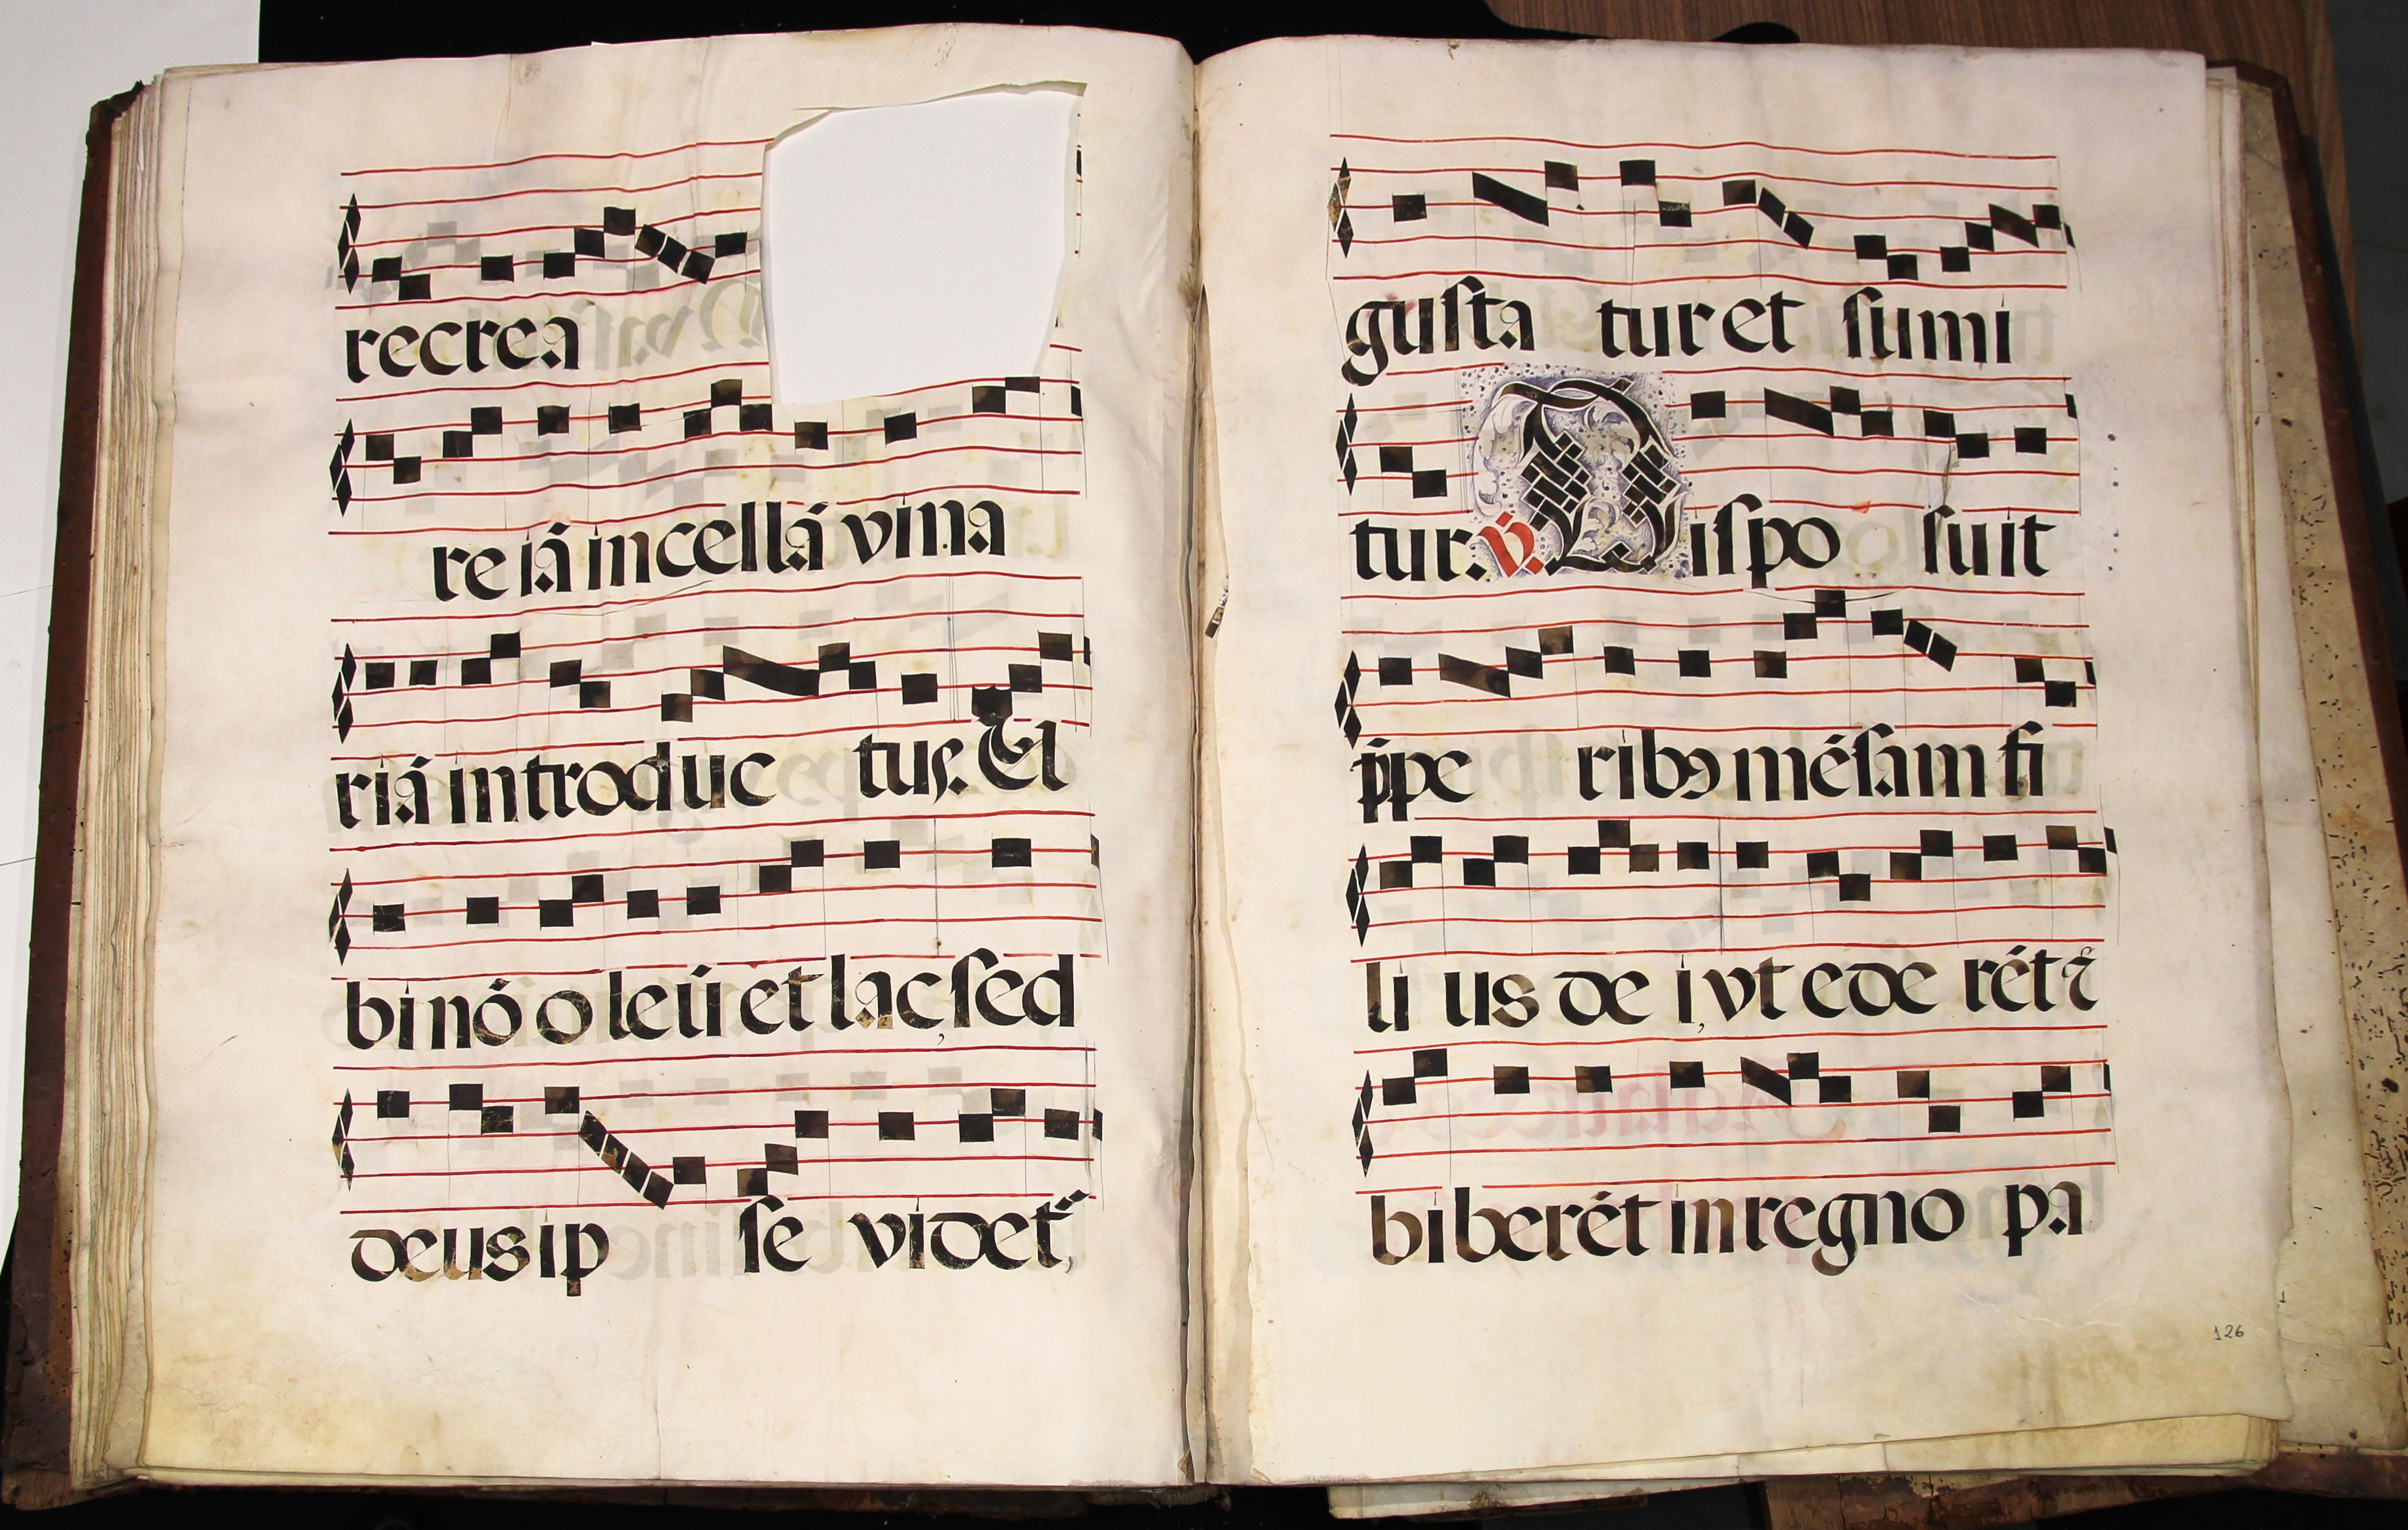 recrea
re iā in cellā vina
riā introduc tuſ. El
bi nō o leū et lac, ſed
deus ip ſe videt᷑,
guſta tur et ſumi
tur. V. Diſpo ſuit
p̄pe ribꝯ mēſam fi
li us de i, vt ede rēt ⁊
bi berēt in regno pa
126